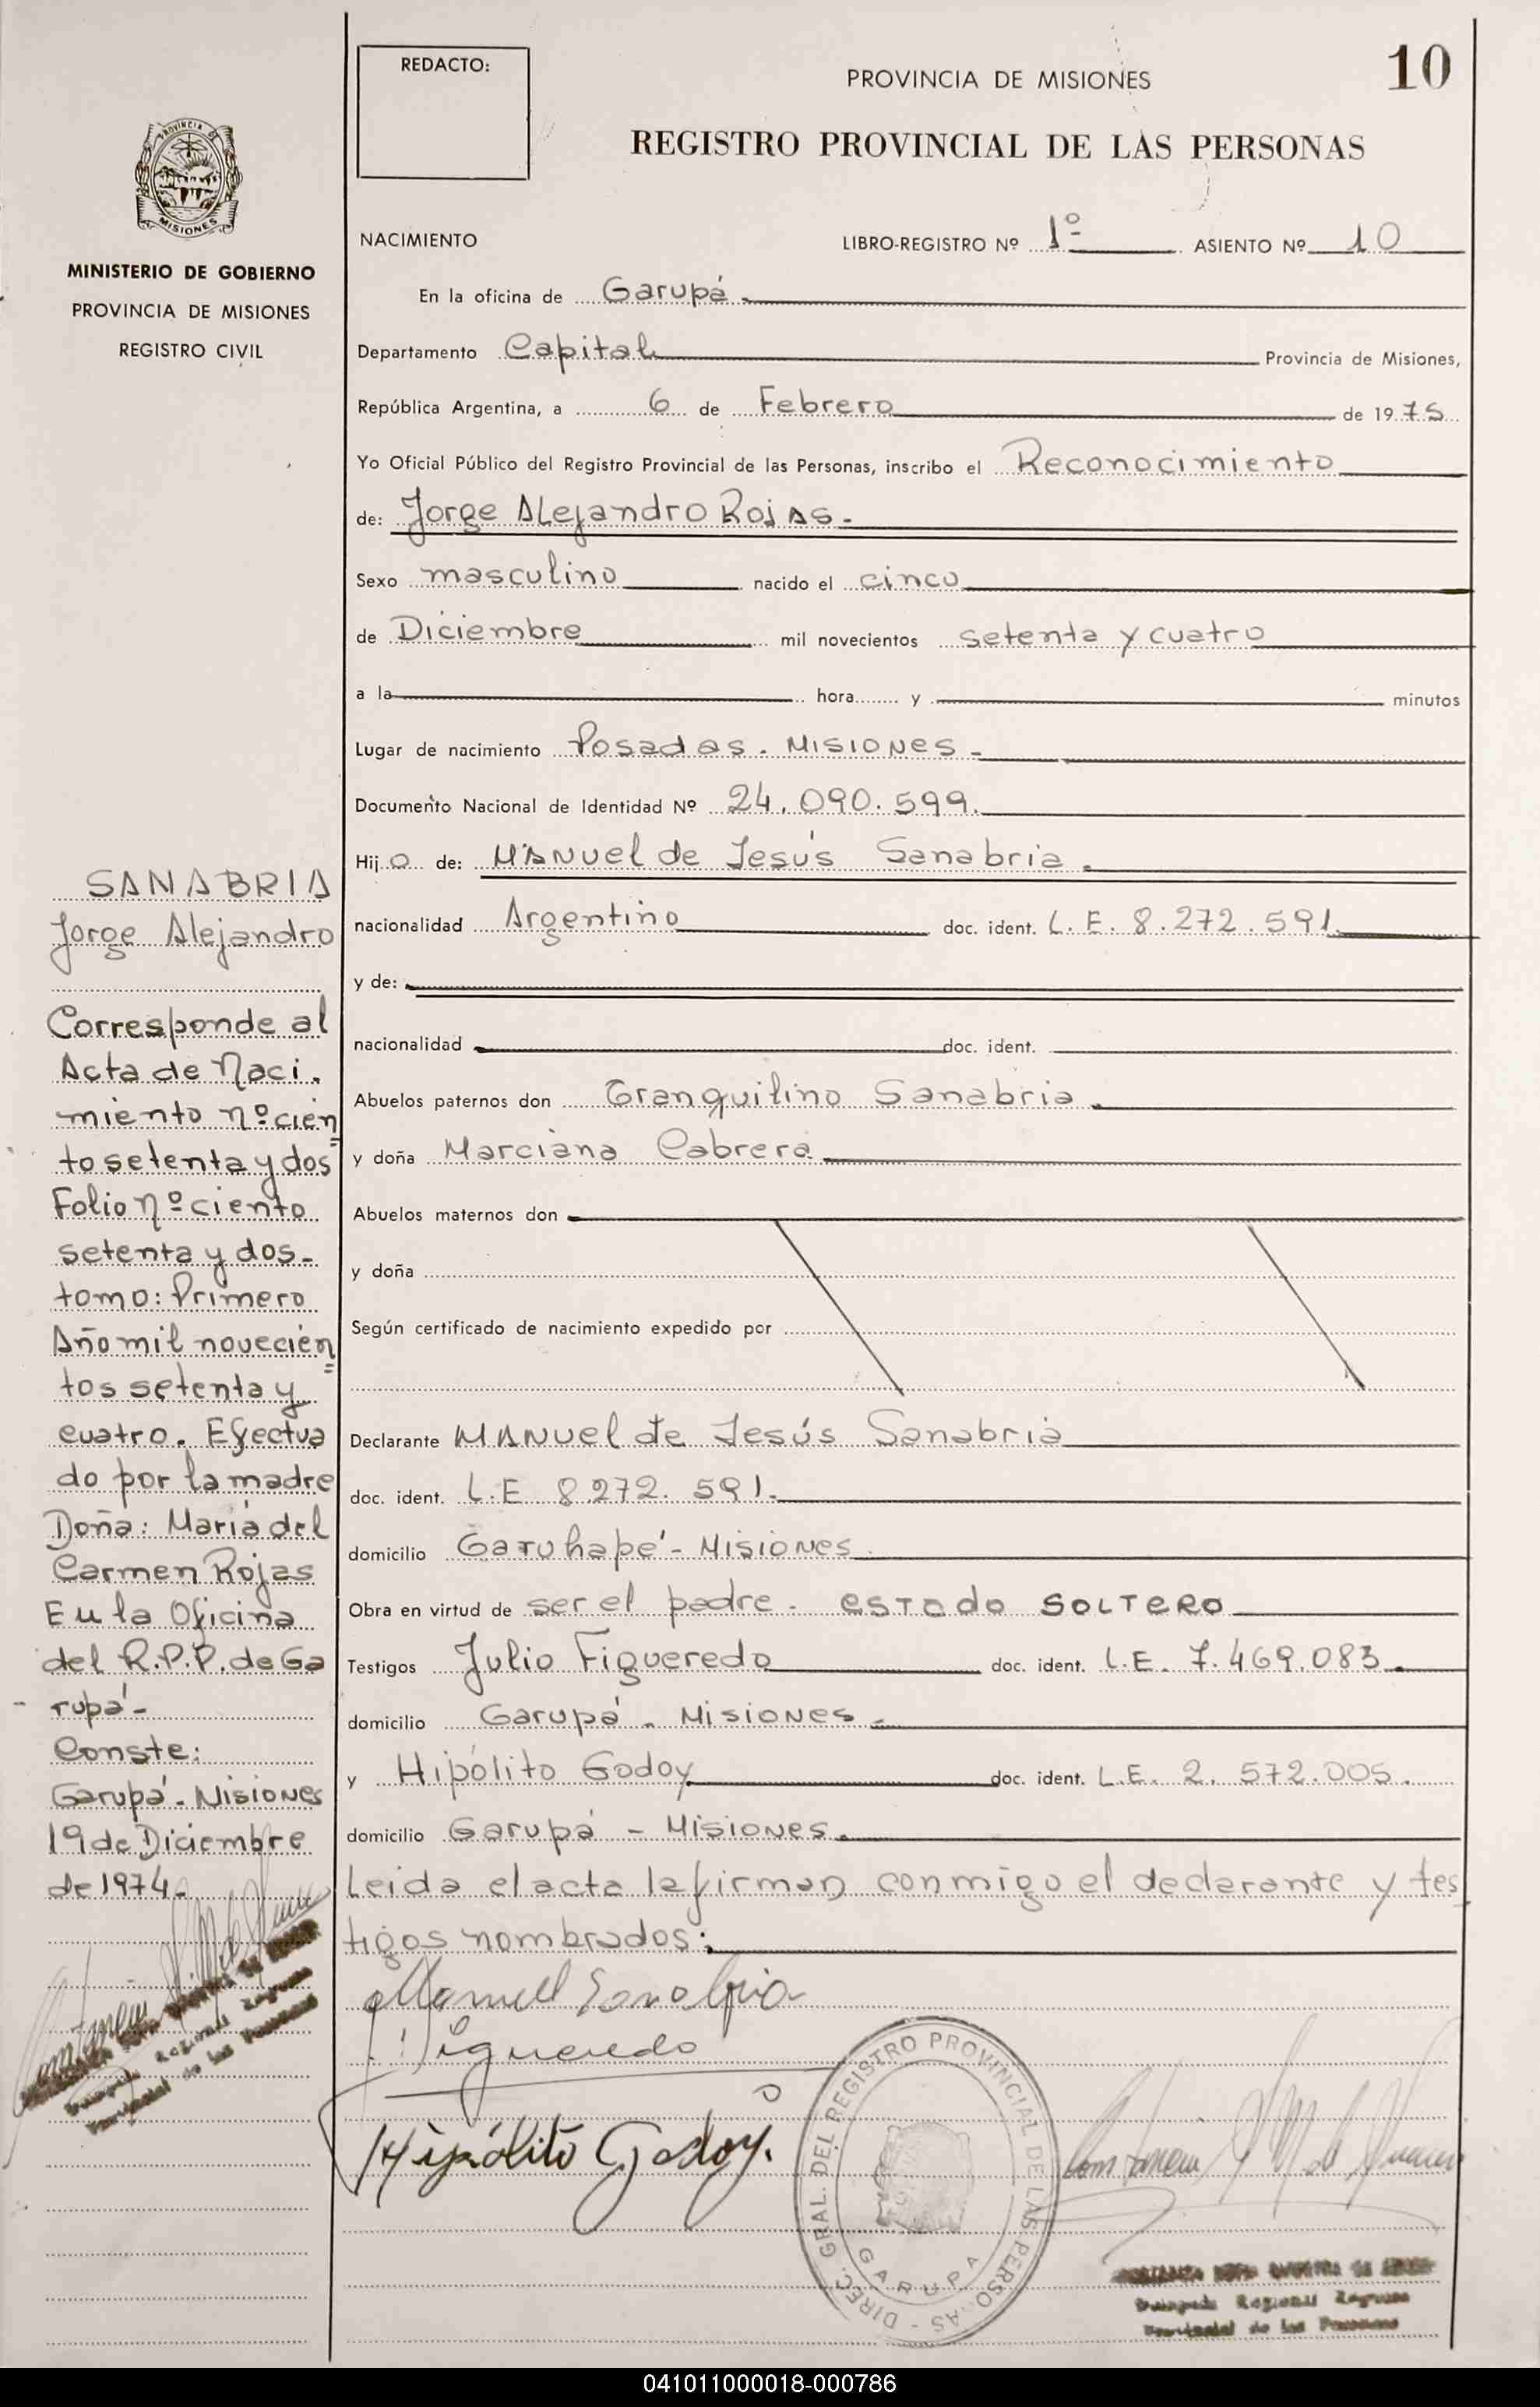 REDACTO:
PROVINCIA DE MISIONES
10
REGISTRO PROVINCIAL DE LAS PERSONAS
PROVINCIA DE
MISIONES
MINISTERIO DE GOBIERNO
PROVINCIA DE MISIONES
REGISTRO CIVIL
NACIMIENTO LIBRO-REGISTRO Nº 1º ASIENTO Nº 10
En la oficina de Garupá.
Departamento Capital Provincia de Misiones,
República Argentina, a 6 de Febrero de 1975
Yo Oficial Público del Registro Provincial de las Personas, inscribo el Reconocimiento
de: Jorge Alejandro Rojas.
Sexo masculino nacido el cinco
de Diciembre mil novecientos setenta y cuatro
a la hora y minutos
Lugar de nacimiento Posadas. Misiones -
Documento Nacional de Identidad Nº 24.090.599.
Hijo de: Manuel de Jesús Sanabria.
nacionalidad Argentino doc. ident. L.E. 8.272.591.
y de:
nacionalidad doc. ident.
Abuelos paternos don Tranquilino Sanabria.
y doña Marciana Cabrera
Abuelos maternos don
y doña
Según certificado de nacimiento expedido por
Declarante Manuel de Jesús Sanabria
doc. ident. L.E 8.272.591.
domicilio Garuhapé - Misiones
Obra en virtud de ser el padre. estado soltero
Testigos Julio Figueredo doc. ident. L.E. 7.469.083.
domicilio Garupá. Misiones -
y Hipólito Godoy doc. ident. L.E. 2.572.005.
domicilio Garupá - Misiones.
Leida el acta la firman conmigo el declarante y tes
tigos nombrados:
Manuel Sanabria
Figueredo
Hipólito Godoy.
DIREC. GRAL. DEL REGISTRO PROVINCIAL DE LAS PERSONAS -
GARUPA
SANABRIA
Jorge Alejandro
Corresponde al
Acta de Naci.
miento nº cien
to setenta y dos
Folio nº ciento
setenta y dos-
tomo: Primero
Año mil novecien
tos setenta y
cuatro. Efectua
do por la madre
Doña: María del
Carmen Rojas
En la Oficina
del R.P.P. de Ga
rupá-
Conste:
Garupá. Misiones
19 de Diciembre
de 1974.
041011000018-000786